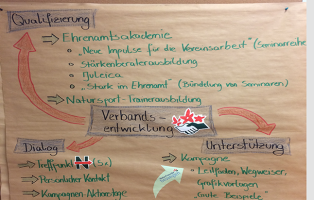 Qualifizierung
Ehrenamtsakademie
"Neue Impulse für die Vereinsarbeit" (Seminarreihe
Stärkenberaterausbildung
Juleica
"Stark im Ehrenamt" (Bündelung von Seminaren)
Natursport-Trainerausbildung
Verbands-
entwicklung
Dialog
Treffpunkt N
Persönlicher Kontakt
Kampagnen Aktionstage
Unterstützung
Kampagne
Leitfäden, Wegweiser,
Grafikvorlagen
"Gute Beispiele"